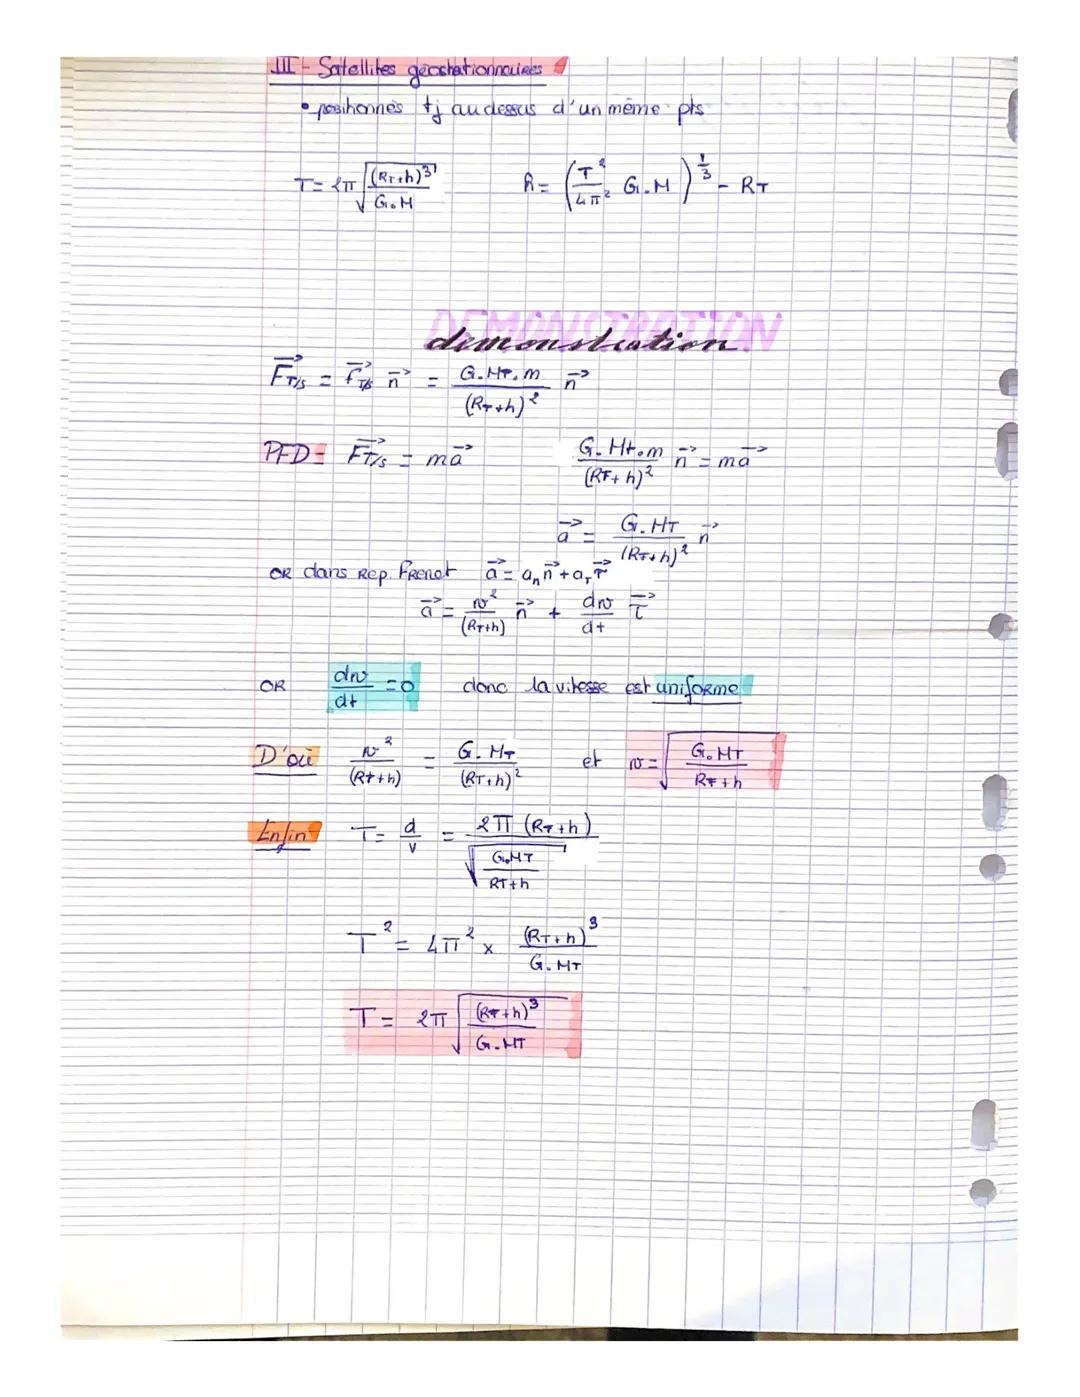 III - Satellites géostationnaires
• positionnés tj au dessus d'un même pts
T = 2π √((RT+h)³ / G.M)    h = (T²/4π² G.M)^(1/3) - RT
DEMONSTRATION
demonstration
F⃗T/S = F⃗T/S n⃗ = G.MT.m / (RT+h)² n⃗
PFD= F⃗T/S = ma⃗    G.Mt.m / (RT+h)² n⃗ = ma⃗
a⃗ = G.MT / (RT+h)² n⃗
OR dans Rep. Frenet a⃗ = aₙn⃗ + aτ τ⃗
a⃗ = v² / (RT+h) n⃗ + dv/dt τ⃗
OR dv/dt = 0 donc la vitesse est uniforme
D'où v² / (RT+h) = G.MT / (RT+h)² et v = √(G.MT / RT+h)
Enfin T = d/v = 2π (RT+h) / √(G.MT / RT+h)
T² = 4π² x (RT+h)³ / G.MT
T = 2π √((RT+h)³ / G.MT)